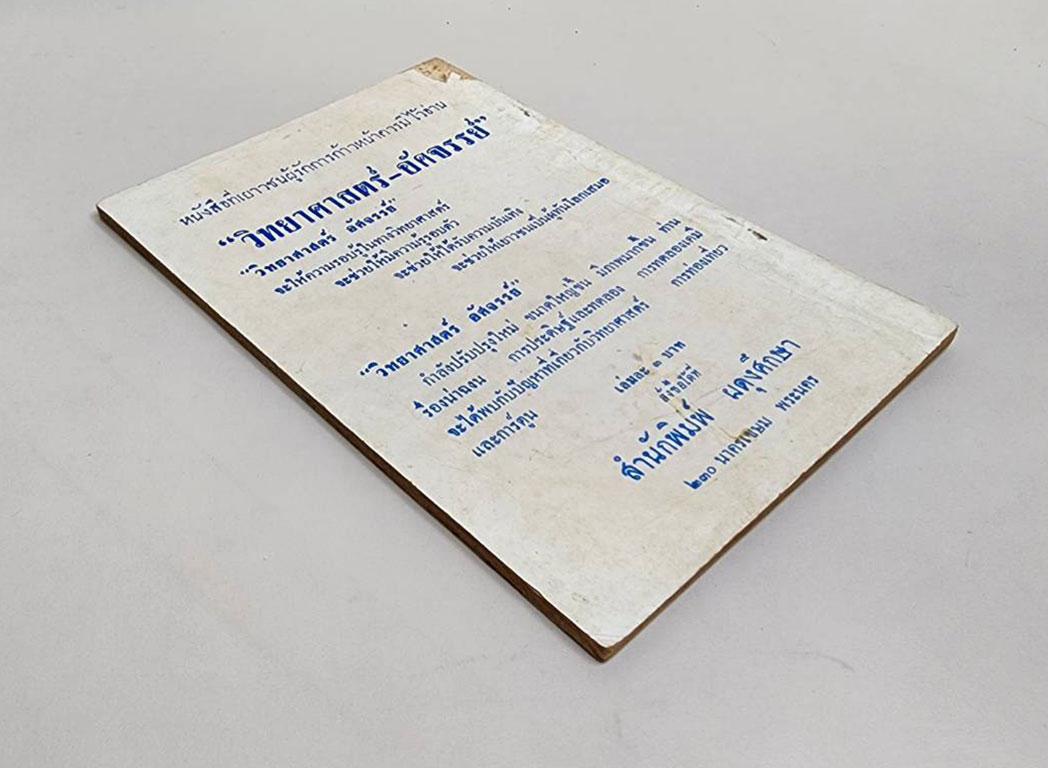 หนังสือที่เยาวชนผู้รักการก้าวหน้าควรมีไว้อ่าน
“วิทยาศาสตร์-อัศจรรย์”
“วิทยาศาสตร์ อัศจรรย์”
จะให้ความรอบรู้ในทางวิทยาศาสตร์
จะช่วยให้มีความรู้รอบตัว
จะช่วยให้ได้รับความบันเทิง
จะช่วยให้เยาวชนเป็นผู้ทันโลกเสมอ
“วิทยาศาสตร์ อัศจรรย์”
กำลังปรับปรุงใหม่ ขนาดใหญ่ขึ้น มีภาพมากขึ้น ท่าน
จะได้พบกับปัญหาที่เกี่ยวกับวิทยาศาสตร์ การทดลองเคมี
เรื่องน่าฉงน การประดิษฐ์และทดลอง การท่องเที่ยว
และการ์ตูน
เล่มละ ๓ บาท
สั่งซื้อได้ที่
สำนักพิมพ์ ผดุงศึกษา
๒๓๐ นาครเขษม พระนคร